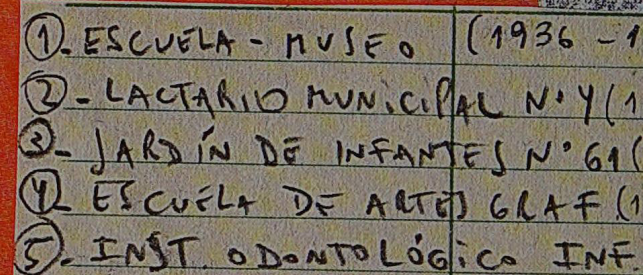 ①- ESCUELA - MUSEO (1936 - 1
②- LACTARIO MUNICIPAL N° 4 (1
③- JARDÍN DE INFANTES N° 61 (
④- ESCUELA DE ARTES GRAF (1
⑤- INST. ODONTOLÓGICO INF